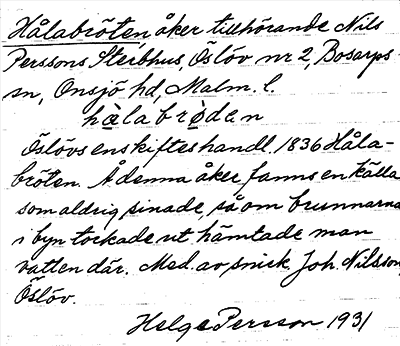 Hålabröten åker tillhörande Nils
Perssons Sterbhus, Öslöv nr 2, Bosarps-
sn, Onsjö hd, Malm. l.
hålabrøden
Öslövs enskifteshandl. 1836 Håla-
bröten. Å denna åker fanns en källa
som aldrig sinade, så om brunnarna
i byn torkade ut hämtade man
vatten där. Med. av snick. Joh. Nilsson,
Öslöv.
Helge Persson 1931